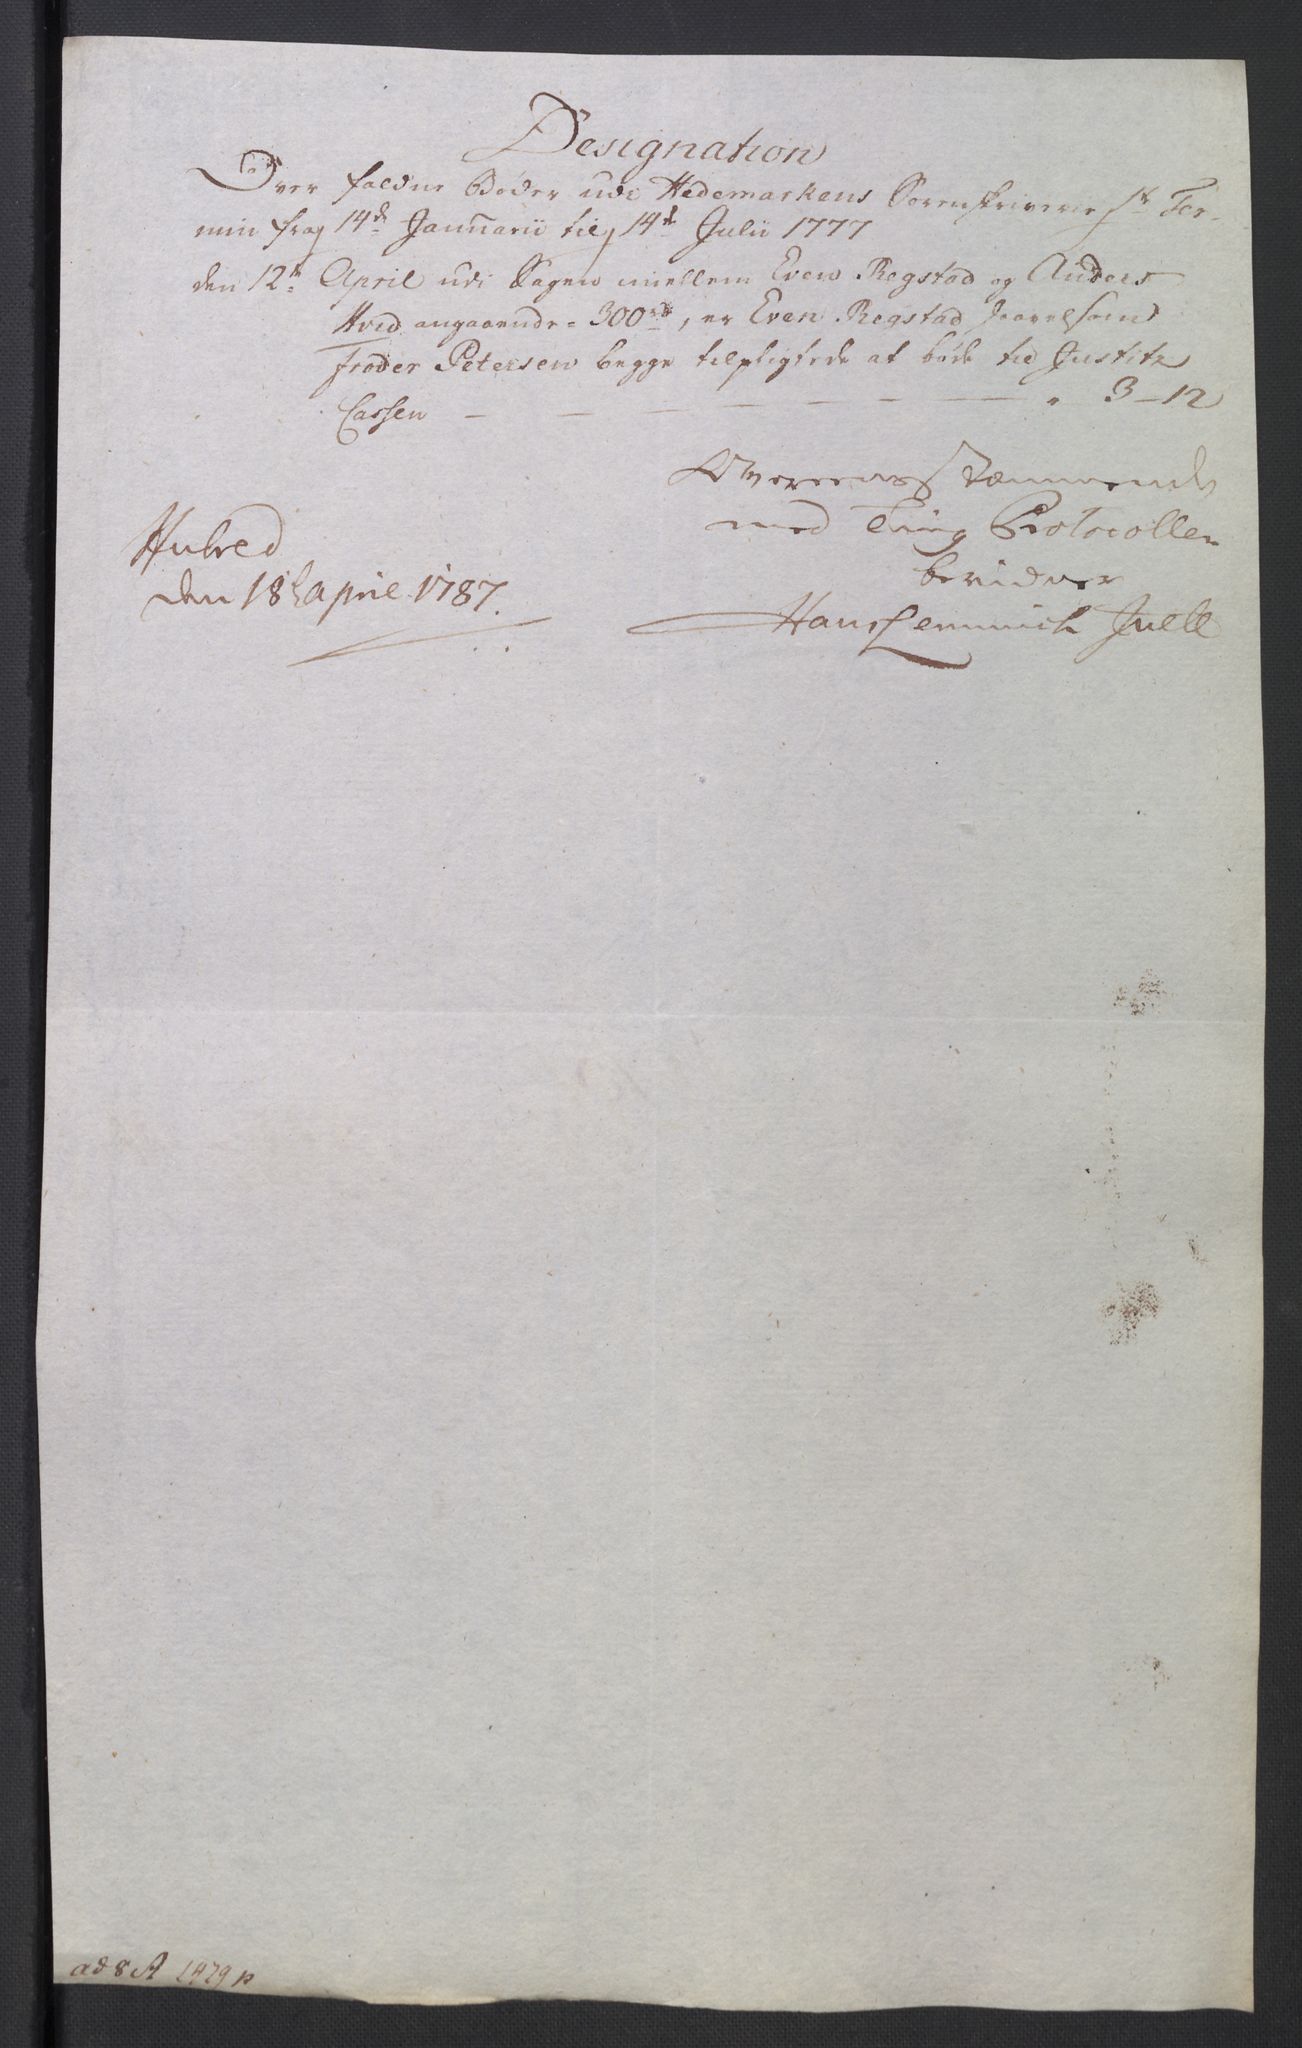 Designation
Over faldne Bøder udi Hedemarkens Sorenskriverie 1te Ter-
min fra 14de Januarii til 14de Julii 1777
den 12te April udi Sagen mellem Even Regstad og Anders
Hvid angaaende 300 rd, er Even Regstad saavelsom
Peter Petersen begge tilpligtede at bøde til Justitz
Cassen — — — — — — — 3 — 12
Overeensstæmmende
med Ting Protocollen
bevidner
Hans Lemmich Juell
Hubred
den 18 April 1787.
ad 8 A 1429 p